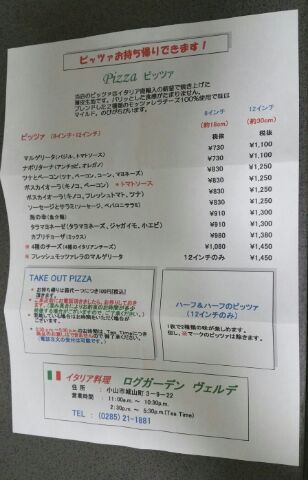 ピッツァお持ち帰りできます!
Pizza ピッツァ
当店のピッツァはイタリア直輸入の薪窯で焼き上げた
薄皮生地です。パリッとした食感がたまりません。
ブレンドした2種類のモッツァレラチーズ100%使用で味は
マイルド。のびがちがいます。
8インチ 12インチ
(約18cm) (約30cm)
ピッツァ (8インチ・12インチ) 税抜 税抜
マルゲリータ(バジル、トマトソース) ¥730 ¥1,100
ナポリターナ(アンチョビ、オレガノ) ¥730 ¥1,100
ツナとベーコン(ツナ、ベーコン、コーン、マヨネーズ) ¥830 ¥1,250
ボスカイオーラ(キノコ、ベーコン) *トマトソース ¥830 ¥1,250
ボスカイオーラ(キノコ、フレッシュトマト、ツナ) ¥830 ¥1,250
ソーセージとサラミ(ソーセージ、ペパロニサラミ) ¥830 ¥1,250
海の幸(魚介類) ¥910 ¥1,300
タラマヨネーゼ(タラマヨネーズ、ジャガイモ、小エビ) ¥910 ¥1,300
カプリチョーザ(ミックス) ¥980 ¥1,380
※ 4種のチーズ(4種のイタリアンチーズ) ¥1,080 ¥1,450
※ フレッシュモッツァレラのマルゲリータ 12インチのみ ¥1,450
TAKE OUT PIZZA
お持ち帰りは箱代一つにつき100円(税込)
頂きます。
ハーフ&ハーフのピッツァ
(12インチのみ)
1枚で2種類の味が楽しめます。
但し、※マークのピッツァは除きます。
イタリア料理 ログガーデン ヴェルデ
住 所 : 小山市城山町 3-9-22
営業時間 : 11:00a.m. ~ 10:30p.m.
2:30p.m. ~ 5:30p.m.(Tea Time)
TEL : (0285) 21-1881